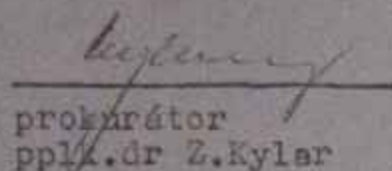 prokurátor
pplk.dr Z.Kylar